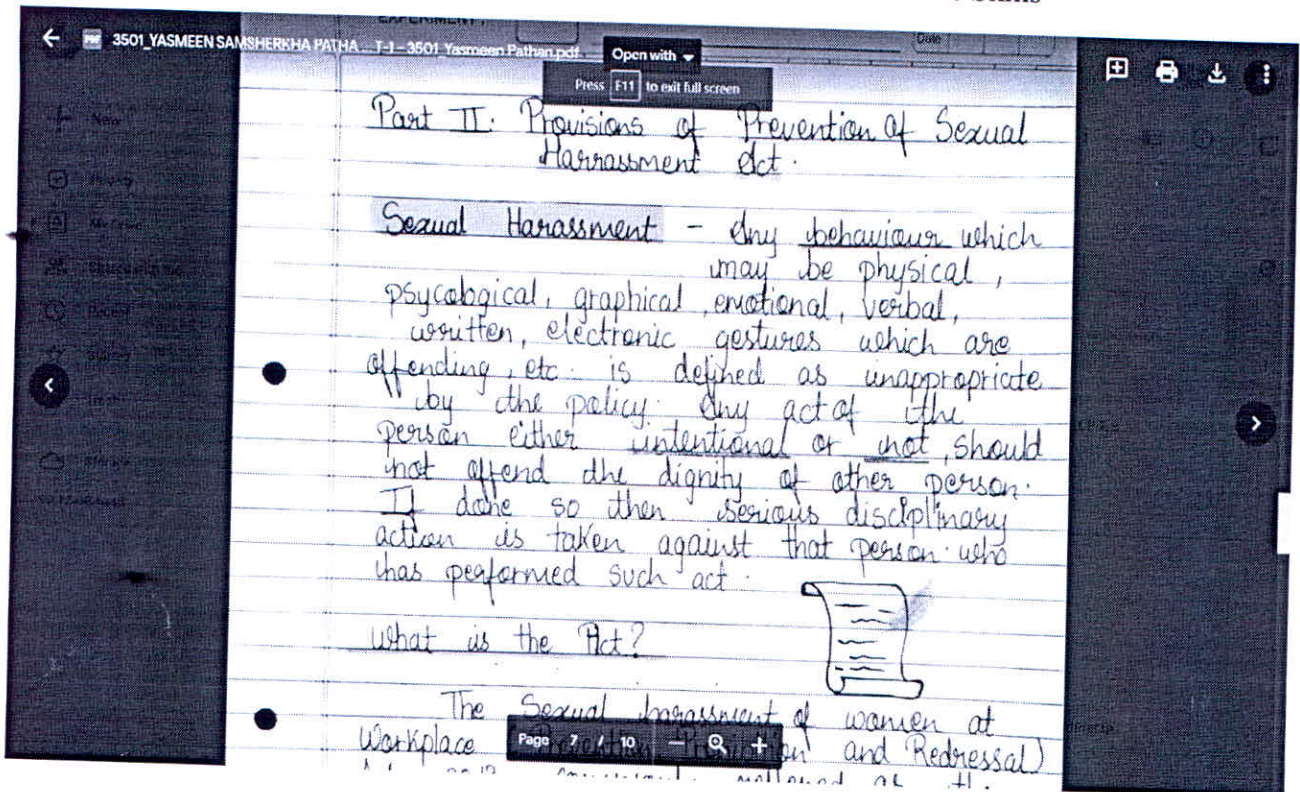 EXPERIMENT
Date
3501_YASMEEN SAMSHERKHA PATHA... T-1 – 3501_Yasmeen Pathan.pdf
Open with
Press F11 to exit full screen
Part II: Provisions of Prevention of Sexual
Harrassment Act.
Sexual Harassment - Any behaviour which
may be physical,
psycological, graphical, emotional, verbal,
written, electronic gestures which are
offending, etc. is defined as unappropriate
by the policy. Any act of the
person either intentional or not, should
not offend the dignity of other person.
If done so then serious disciplinary
action is taken against that person who
has performed such act.
What is the Act?
The Sexual harassment of women at
Workplace and Redressal)
Page 7 / 10